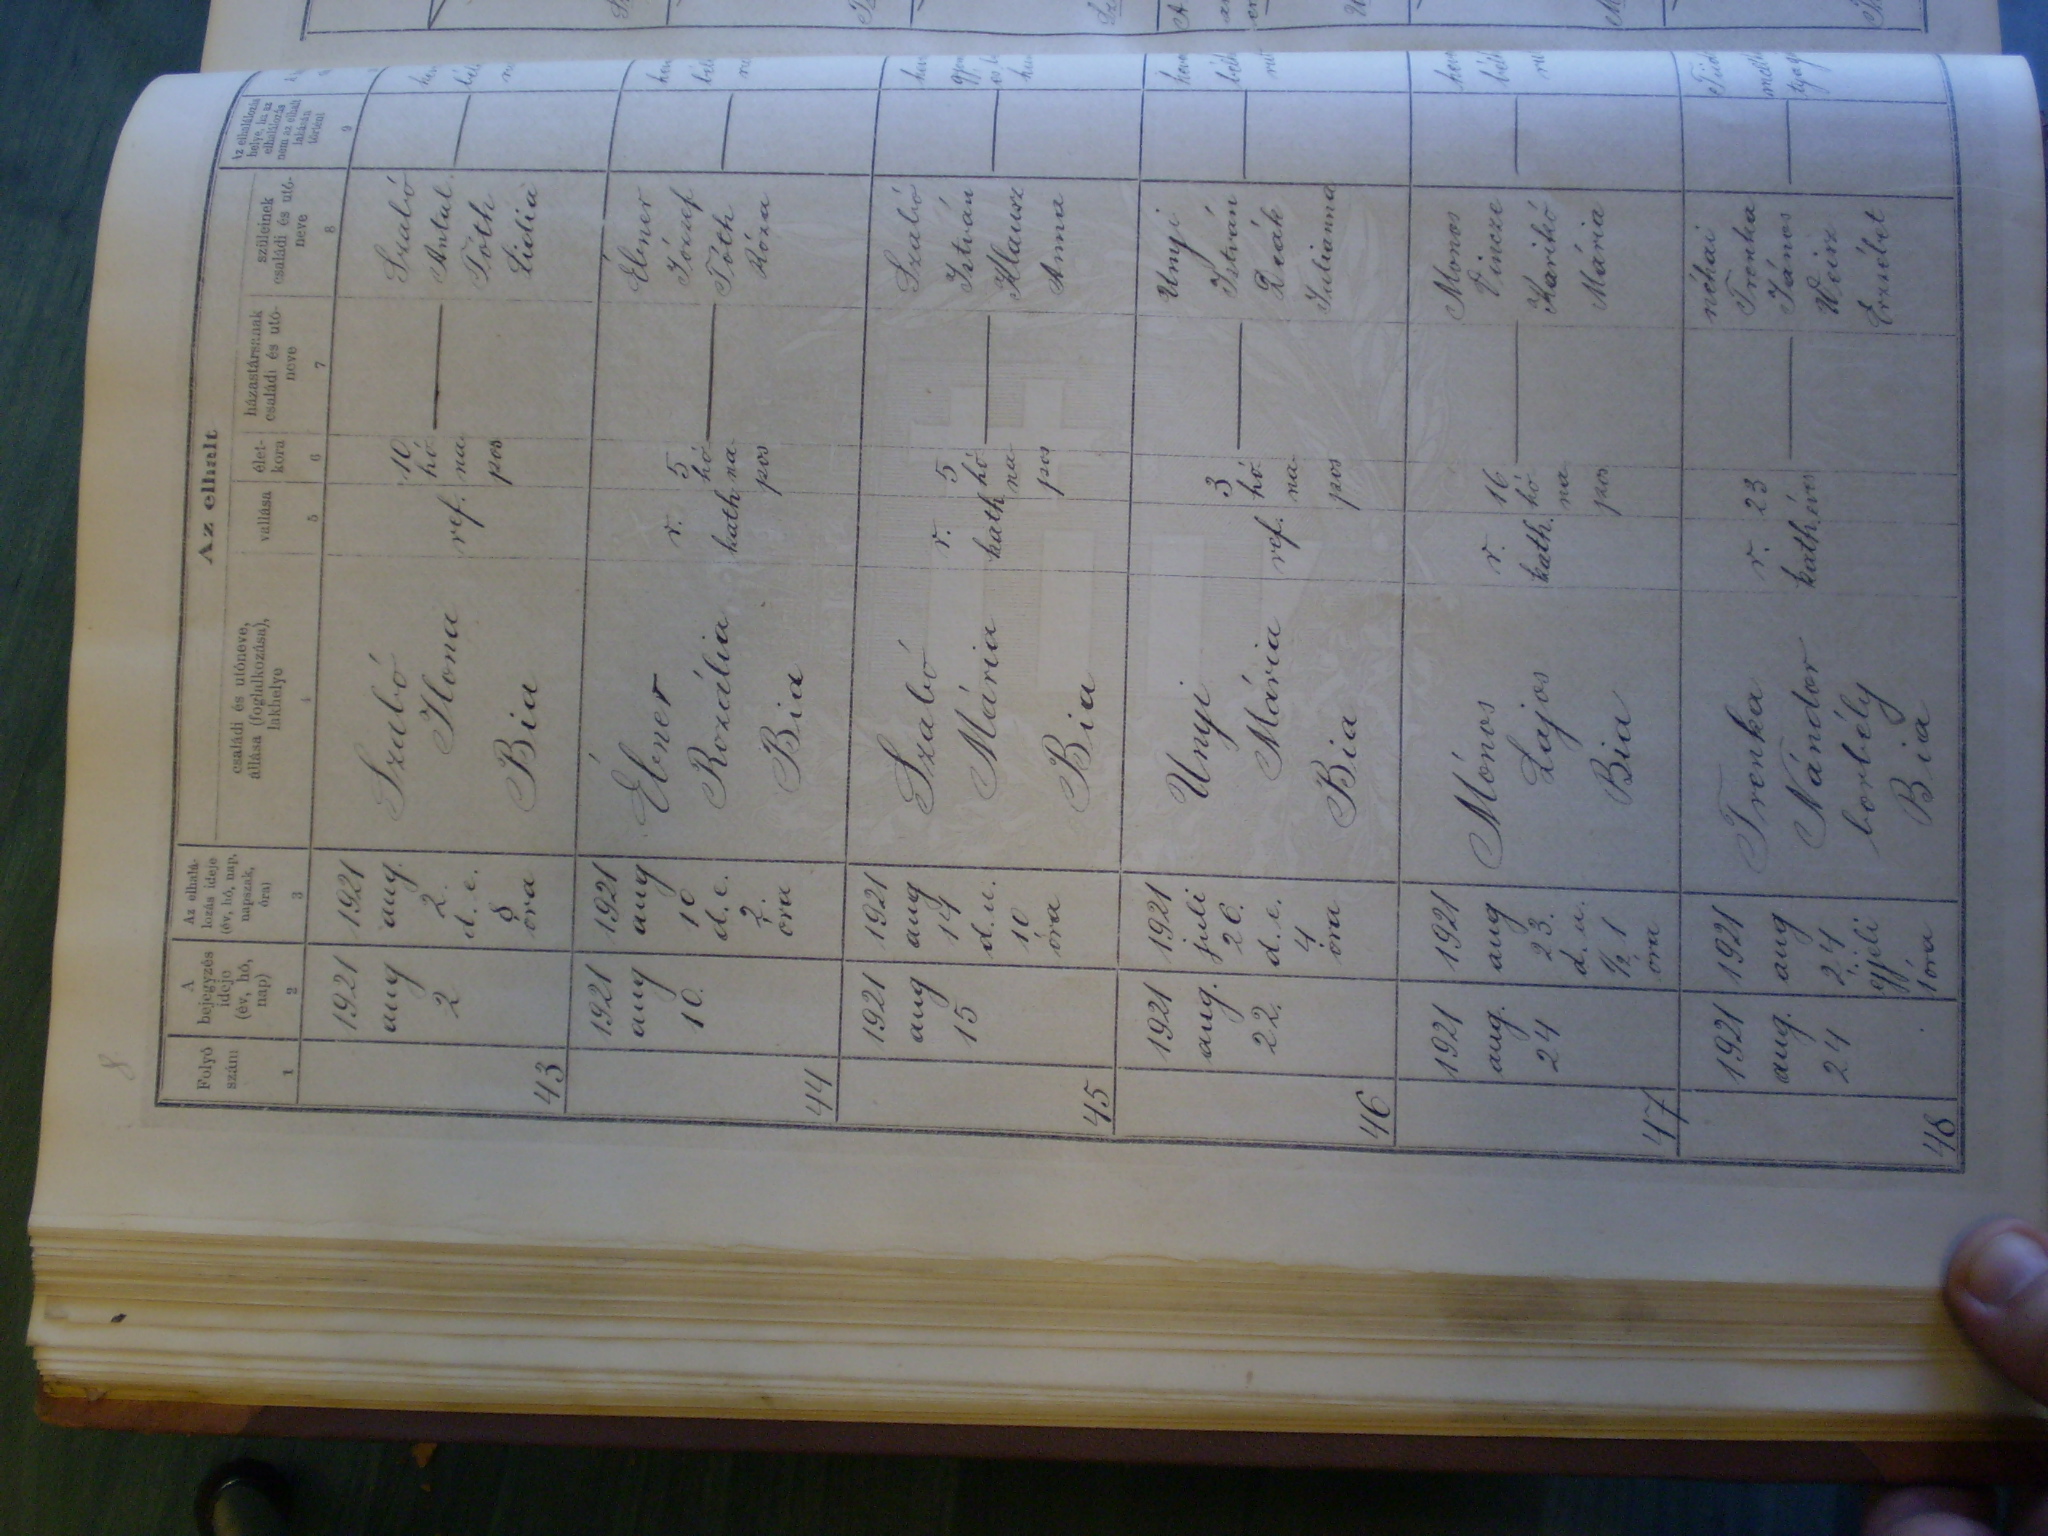 8
Az elhalt
Folyó
szám
A
bejegyzés
ideje
(év, hó,
nap)
Az elhalá-
lozás ideje
(év, hó, nap,
napszak,
óra)
családi és utóneve,
állása (foglalkozása),
lakhelye
vallása
élet-
kora
házastársának
családi és utó-
neve
szüleinek
családi és utó-
neve
Az elhalálozás
helye, ha az
elhalálozás
nem az elhalt
lakásán
történt
1
2
3
4
5
6
7
8
9
43
1921
aug
2
1921
aug.
2.
d. e.
8
óra
Szabó
Ilona
Bia
ref.
10
hó
na
pos
Szabó
Antal
Tóth
Lidia
44
1921
aug
10.
1921
aug
10
d. e.
7.
óra
Ébner
Rozália
Bia
r.
kath
5
hó
na
pos
Ébner
József
Tóth
Róza
45
1921
aug
15
1921
aug
14
d. u.
10
óra
Szabó
Mária
Bia
r.
kath
5
hó
na
pos
Szabó
István
Klausz
Anna
46
1921
aug.
22.
1921
juli
26.
d. e.
4
óra
Unyi
Mária
Bia
ref.
3
hó
na
pos
Unyi
István
Deák
Julianna
47
1921
aug.
24
1921
aug
23.
d. u.
1/2 1
óra
Mónos
Lajos
Bia
r.
kath.
16
hó
na
pos
Monos
Vincze
Karikó
Mária
48
1921
aug.
24
1921
aug
24
éjjeli
1 óra
Trenka
Nándor
borbély
Bia
r.
kath
23
éves
néhai
Trenka
János
Weisz
Erzsébet